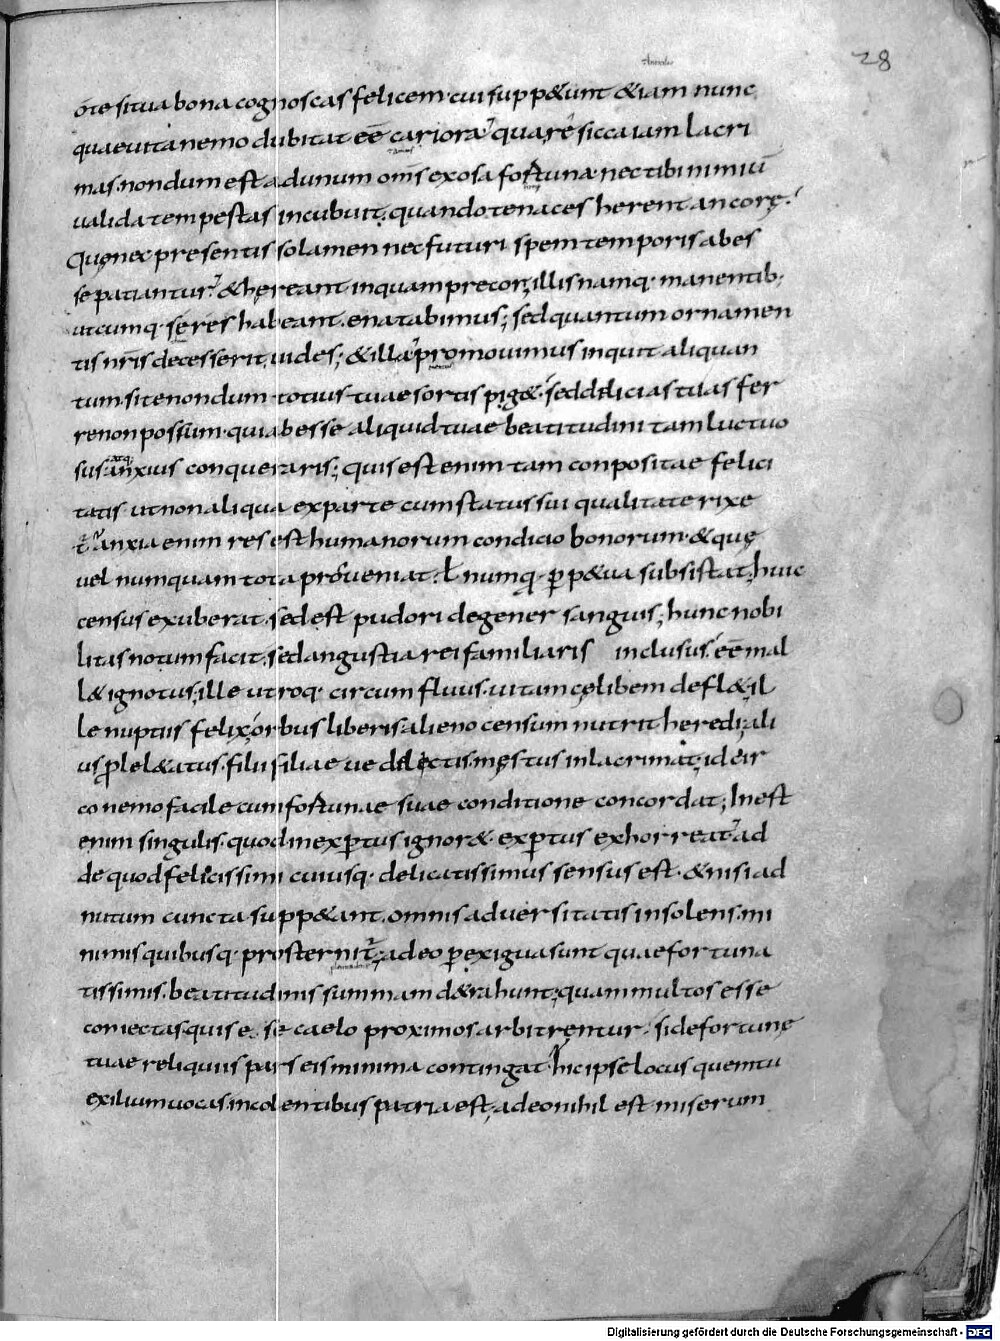 28
o te si tua bona cognoscas felicem· cui suppa&unt &iam nunc
quae uita nemo dubitat eē cariora· quare sicca iam lacri
mas· nondum est ad unum om̄s exosa fortuna· nec tibi nimiū
ualida tempestas incubuit; quando tenaces herent ancorę·
Quę nec presentis solamen nec futuri spem temporis abesse
se patiantur· & hęreant inquam precor; illis namq· manentib;
utcumq· se res habeant· enatabimus; sed quantum ornamen
tis nr̄is decesserit, uides; & illa promouimus inquit aliquan
tum· si te nondum totius tuae sortis pig&· sed delicias tuas fer
re non possum· qui abesse aliquid tuae beatitudini tam luctuo
sus anxius conqueraris; quis est enim tam conpositae felici
tatis ut non aliqua ex parte cum status sui qualitate rixe
t̄· anxia enim res est humanorum condicio bonorum· & quę
uel numquam tota proueniat· ł numq· ꝑp&ua subsistat; huic
census exuberat· sed est pudori degener sanguis; hunc nobi
litas notum facit· sed angustia rei familiaris inclusus· eē mal
l& ignotus; ille utroq· circumfluus· uitam cęlibem defl&; il
le nuptiis felix· orbus liberis alieno censum nutrit heredi; ali
us ꝓle l&atus· filii filiae ue delictis męstus inlacrimat; idcir
co nemo facile cum fortunae suae conditione concordat; Inest
enim singulis· quod inexꝑtus ignor&· exꝑtus exhorreat· ad
de quod felicissimi cuiusq· delicatissimus sensus est· & nisi ad
nutum cuncta supp&ant· omnis aduersitatis insolens· mi
nimis quibusq· prosternit̄; adeo ꝑexigua sunt quae fortuna
tissimis· beatitudinis summam d&rahunt; quam multos esse
coniectas qui se se caelo proximos arbitrentur· si de fortunę
tuae reliquiis pars eis minima contingat· hic ipse locus quem tu
exilium uocas, incolentibus patria est; adeo nihil est miserum
Digitalisierung gefördert durch die Deutsche Forschungsgemeinschaft - DFG